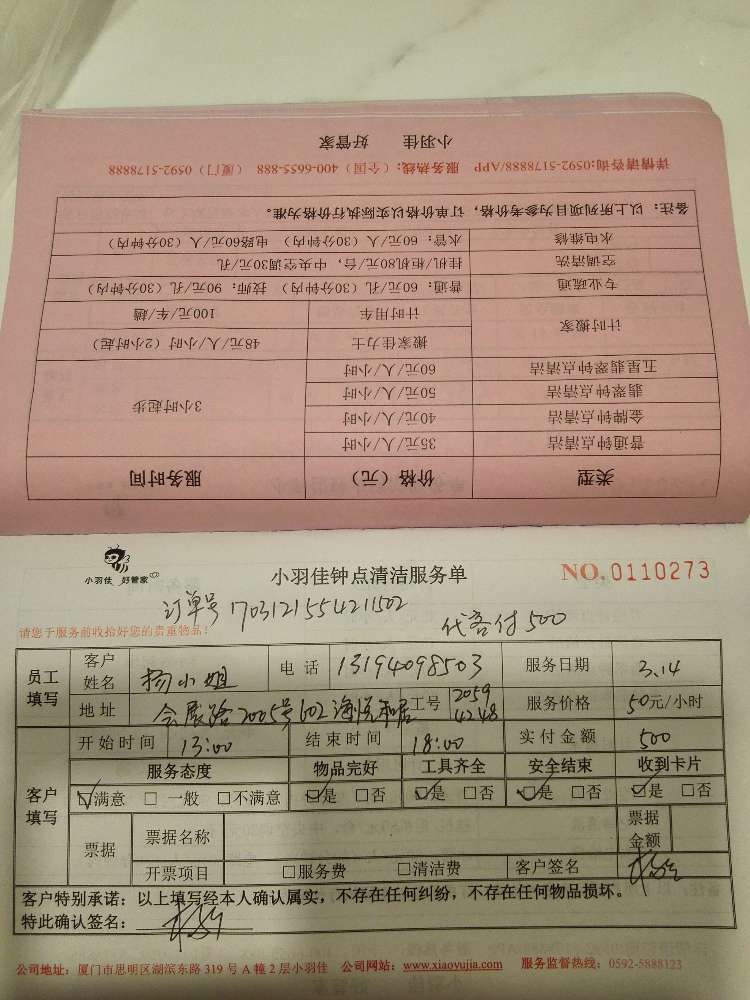 小羽佳 好管家
详情请咨询:0592-5178888/APP 服务热线:(全国)400-6655-888 (厦门)0592-5178888
类型 价格(元) 服务时间
普通钟点清洁 35元/人/小时 3小时起步
金牌钟点清洁 40元/人/小时
翡翠钟点清洁 50元/人/小时
五星翡翠钟点清洁 60元/人/小时
计时搬家 搬家佳力士 48元/人/小时(2小时起)
计时用车 100元/车/趟
专业疏通 普通:60元/孔(30分钟内) 技师:90元/孔(30分钟内)
空调清洗 挂机/柜机80元/台,中央空调30元/孔
水电维修 水管:60元/人(30分钟内) 电路60元/人(30分钟内)
备注:以上所列项目为参考价格,订单价格以实际执行价格为准。
小羽佳 好管家
小羽佳钟点清洁服务单
NO.0110273
订单号 170312155421502
代客付500
请您于服务前收拾好您的贵重物品!
员工填写 客户姓名 杨小姐 电话 13194098503 服务日期 3.14
地址 会展路2005号602海悦 工号 2059 4248 服务价格 50元/小时
客户填写 开始时间 13:00 结束时间 18:00 实付金额 500
服务态度 物品完好 工具齐全 安全结束 收到卡片
☑满意 □一般 □不满意 ☑是 □否 ☑是 □否 ☑是 □否 ☑是 □否
票据 票据名称 票据金额
开票项目 □服务费 □清洁费 客户签名
客户特别承诺:以上填写经本人确认属实,不存在任何纠纷,不存在任何物品损坏。
特此确认签名:
公司地址:厦门市思明区湖滨东路319号A幢2层小羽佳 公司网站:www.xiaoyujia.com 服务监督热线:0592-5888123